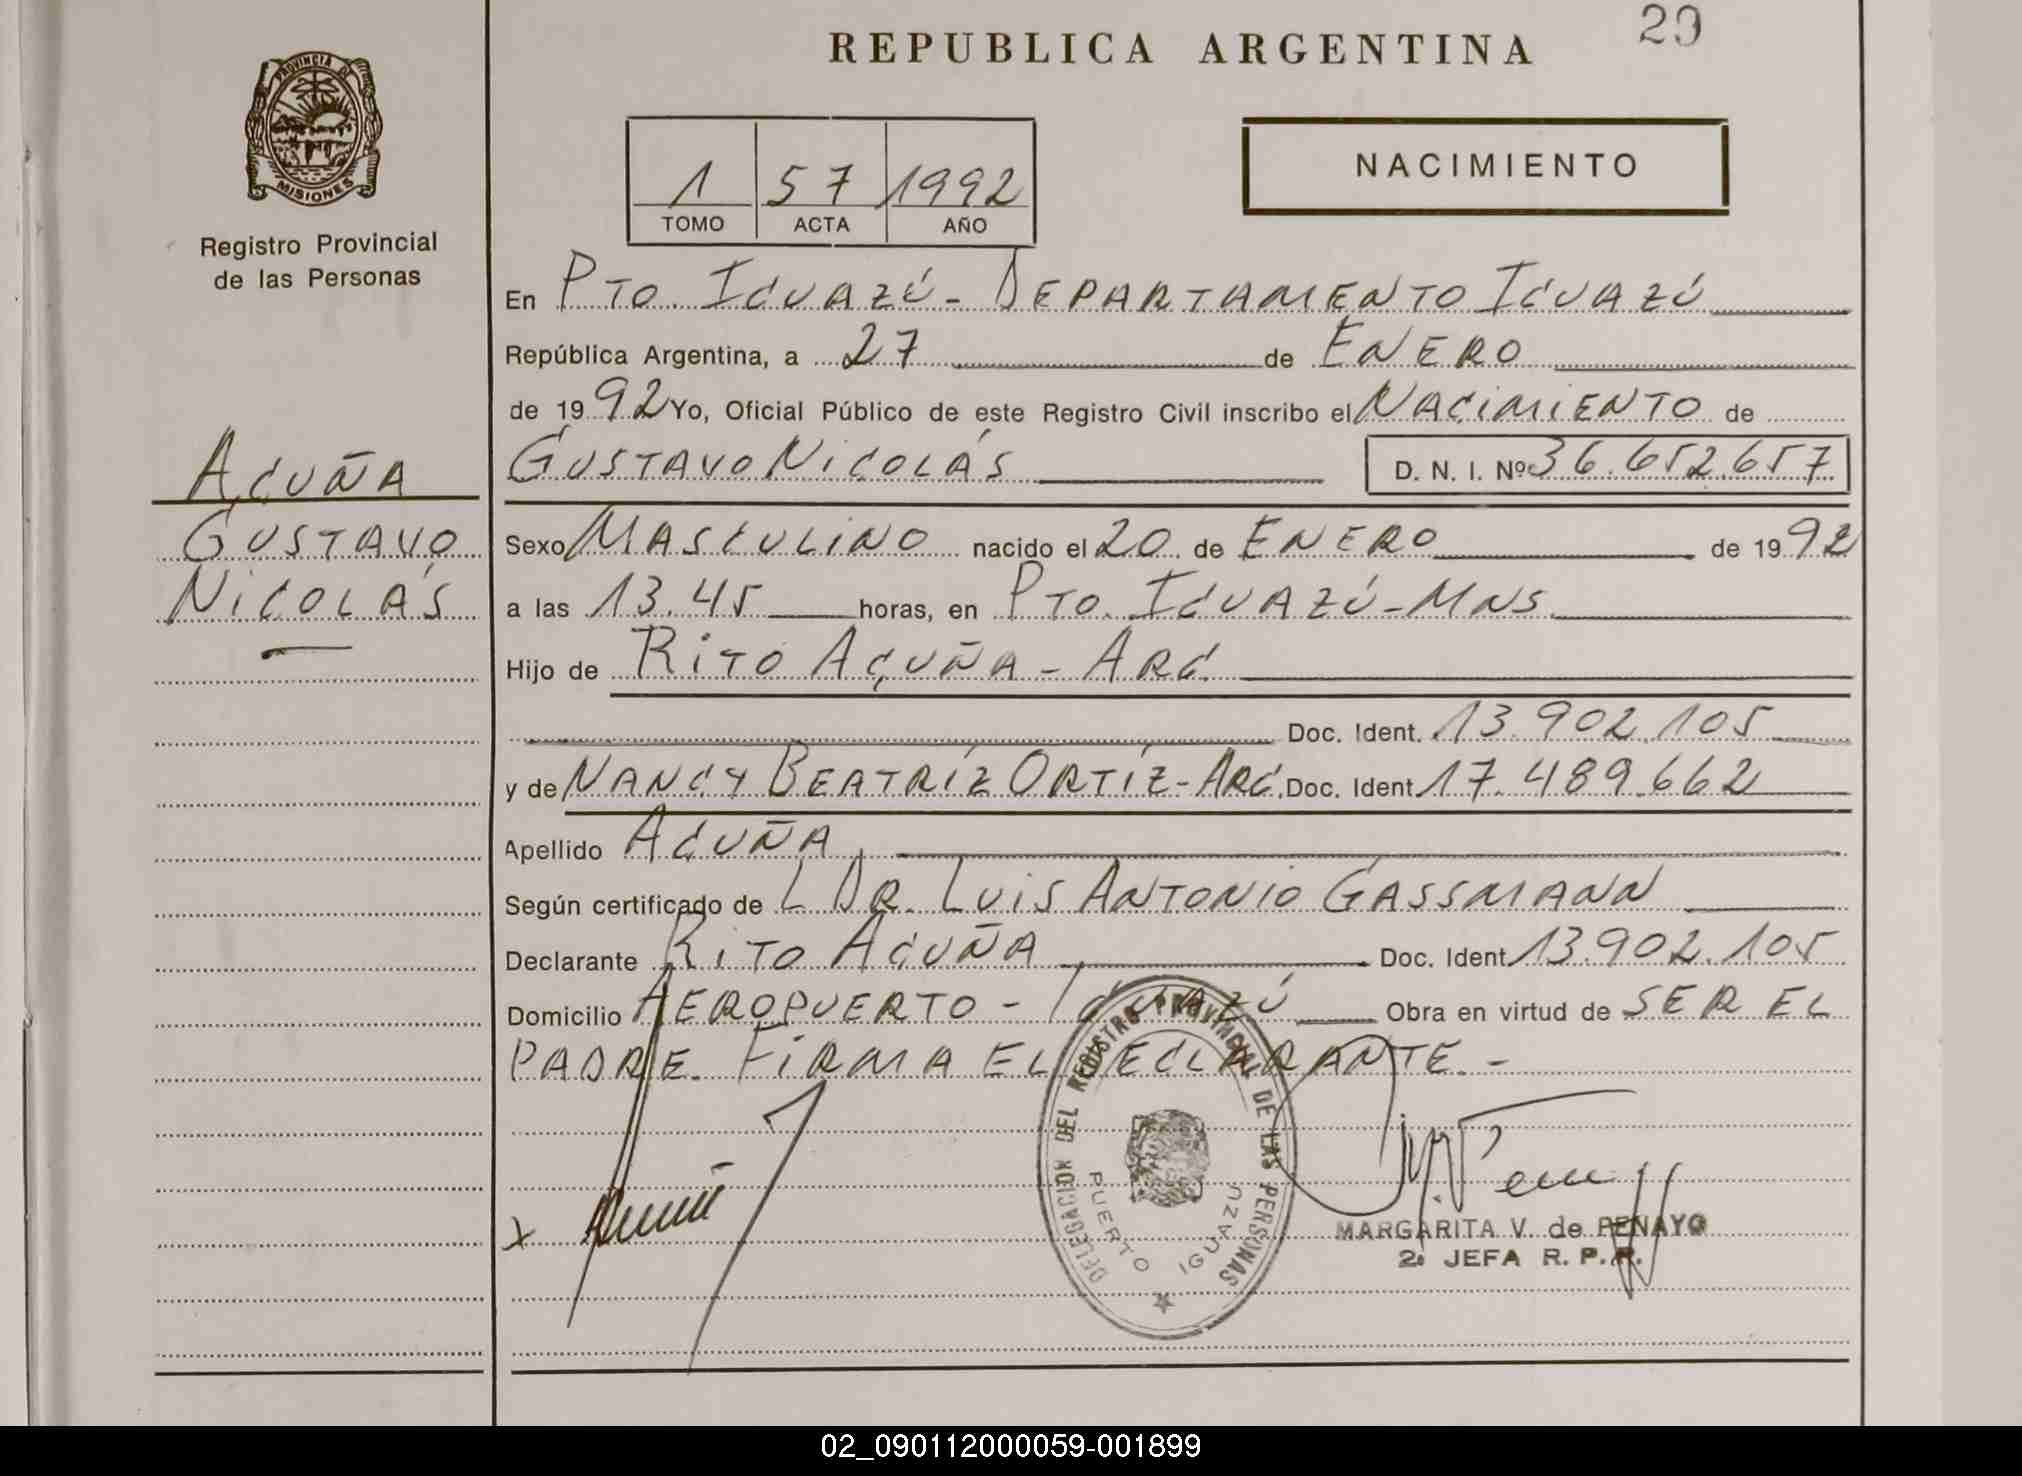 REPUBLICA ARGENTINA
29
PROVINCIA DE
MISIONES
Registro Provincial
de las Personas
1 57 1992
TOMO ACTA AÑO
NACIMIENTO
En PTO. IGUAZÚ - DEPARTAMENTO IGUAZÚ
República Argentina, a 27 de ENERO
de 1992 Yo, Oficial Público de este Registro Civil inscribo el NACIMIENTO de
GUSTAVO NICOLÁS D. N. I. Nº 36.652.657
ACUÑA
GUSTAVO
NICOLÁS
Sexo MASCULINO nacido el 20 de ENERO de 1992
a las 13.45 horas, en PTO. IGUAZÚ - MNS.
Hijo de RITO ACUÑA - ARG.
Doc. Ident. 13.902.105
y de NANCY BEATRÍZ ORTÍZ - ARG. Doc. Ident 17.489.662
Apellido ACUÑA
Según certificado de L DR. LUIS ANTONIO GASSMANN
Declarante RITO ACUÑA Doc. Ident 13.902.105
Domicilio AEROPUERTO - IGUAZÚ Obra en virtud de SER EL
PADRE. FIRMA EL DECLARANTE. -
DELEGACION DEL REGISTRO PROVINCIAL DE LAS PERSONAS
PUERTO IGUAZU
X
MARGARITA V. de PENAYO
2ª JEFA R. P. P.
02_090112000059-001899